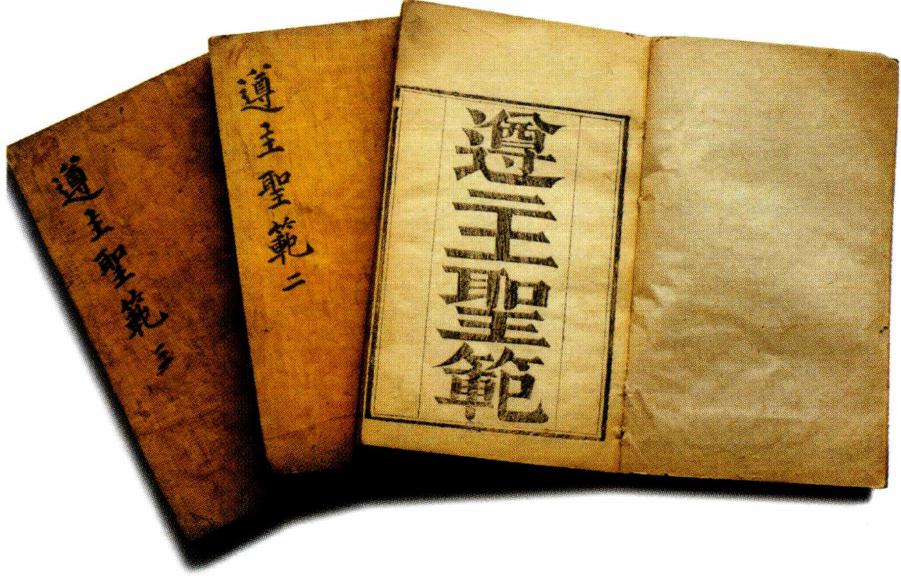 遵主聖範
遵主聖範二
遵主聖範三